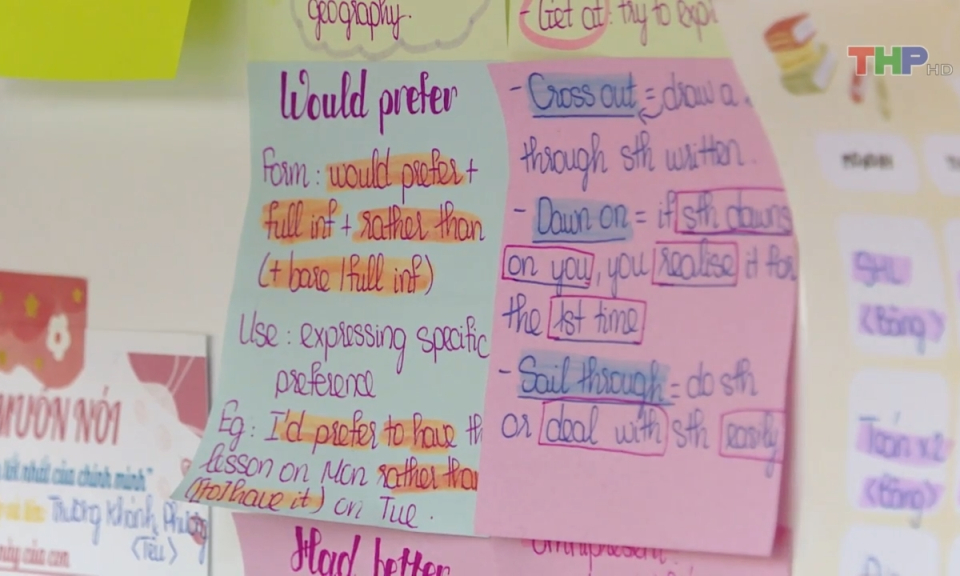 geography.
- Get at: try to expl
THP HD
Would prefer
Form: would prefer +
full inf + rather than
(+ base/full inf)
Use: expressing specific
preference
Eg: I'd prefer to have th
lesson on Mon rather than
(to have it) on Tue.
Had better
- Cross out = draw a
through sth written.
- Dawn on = if sth dawns
on you, you realise it for
the 1st time
- Sail through = do sth
or deal with sth easily
MUỐN NÓI
tốt nhất của chính mình"
Trương Khánh Phương
(Têu)
này của con
SHL
(Bông)
Toán x2
(Bông)